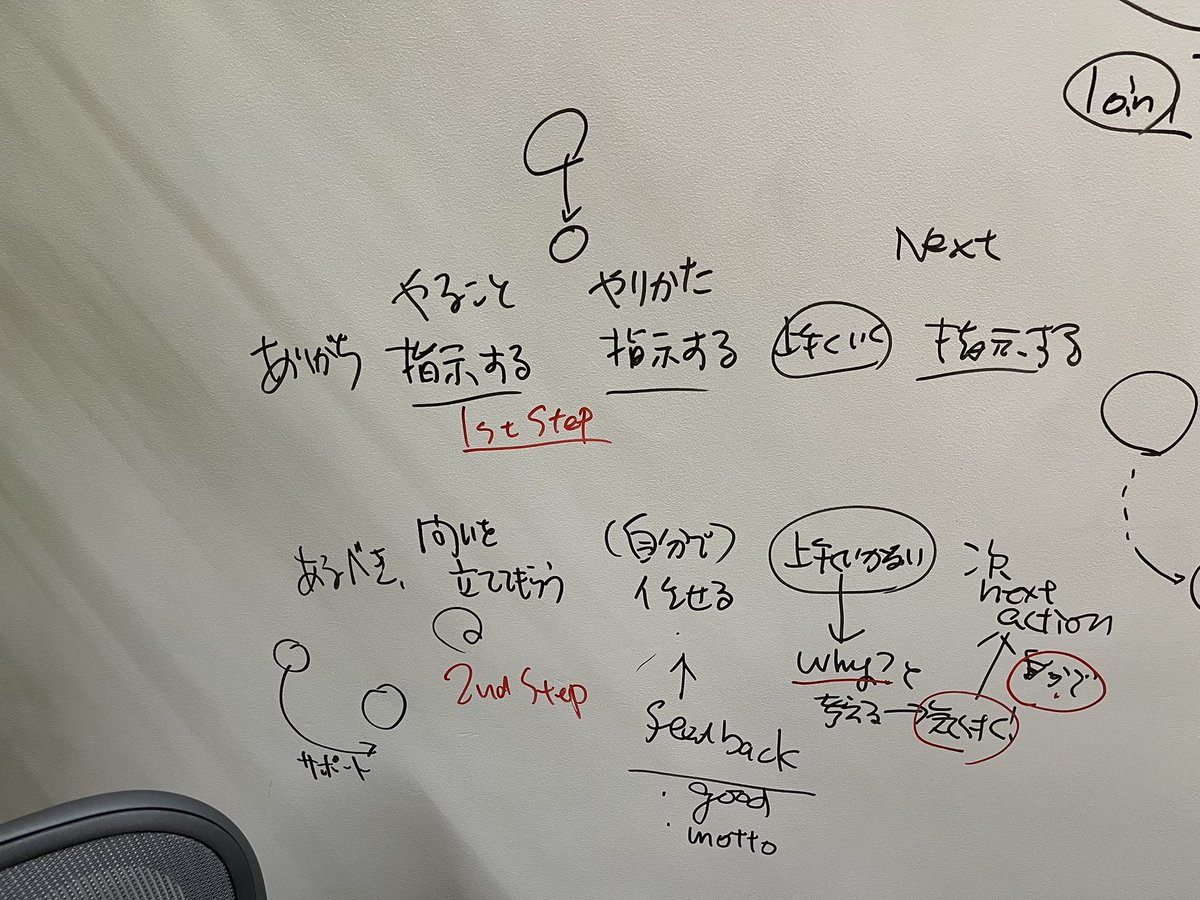 Join
Next
やること
やりかた
ありがち
指示する
指示する
上手くいく
指示する
1st Step
あるべき、
問いを
立ててもらう
(自分で)
任せる
上手くいかない
次
next
action
2nd Step
サポート
feedback
・good
・motto
why?と
考える
自分で